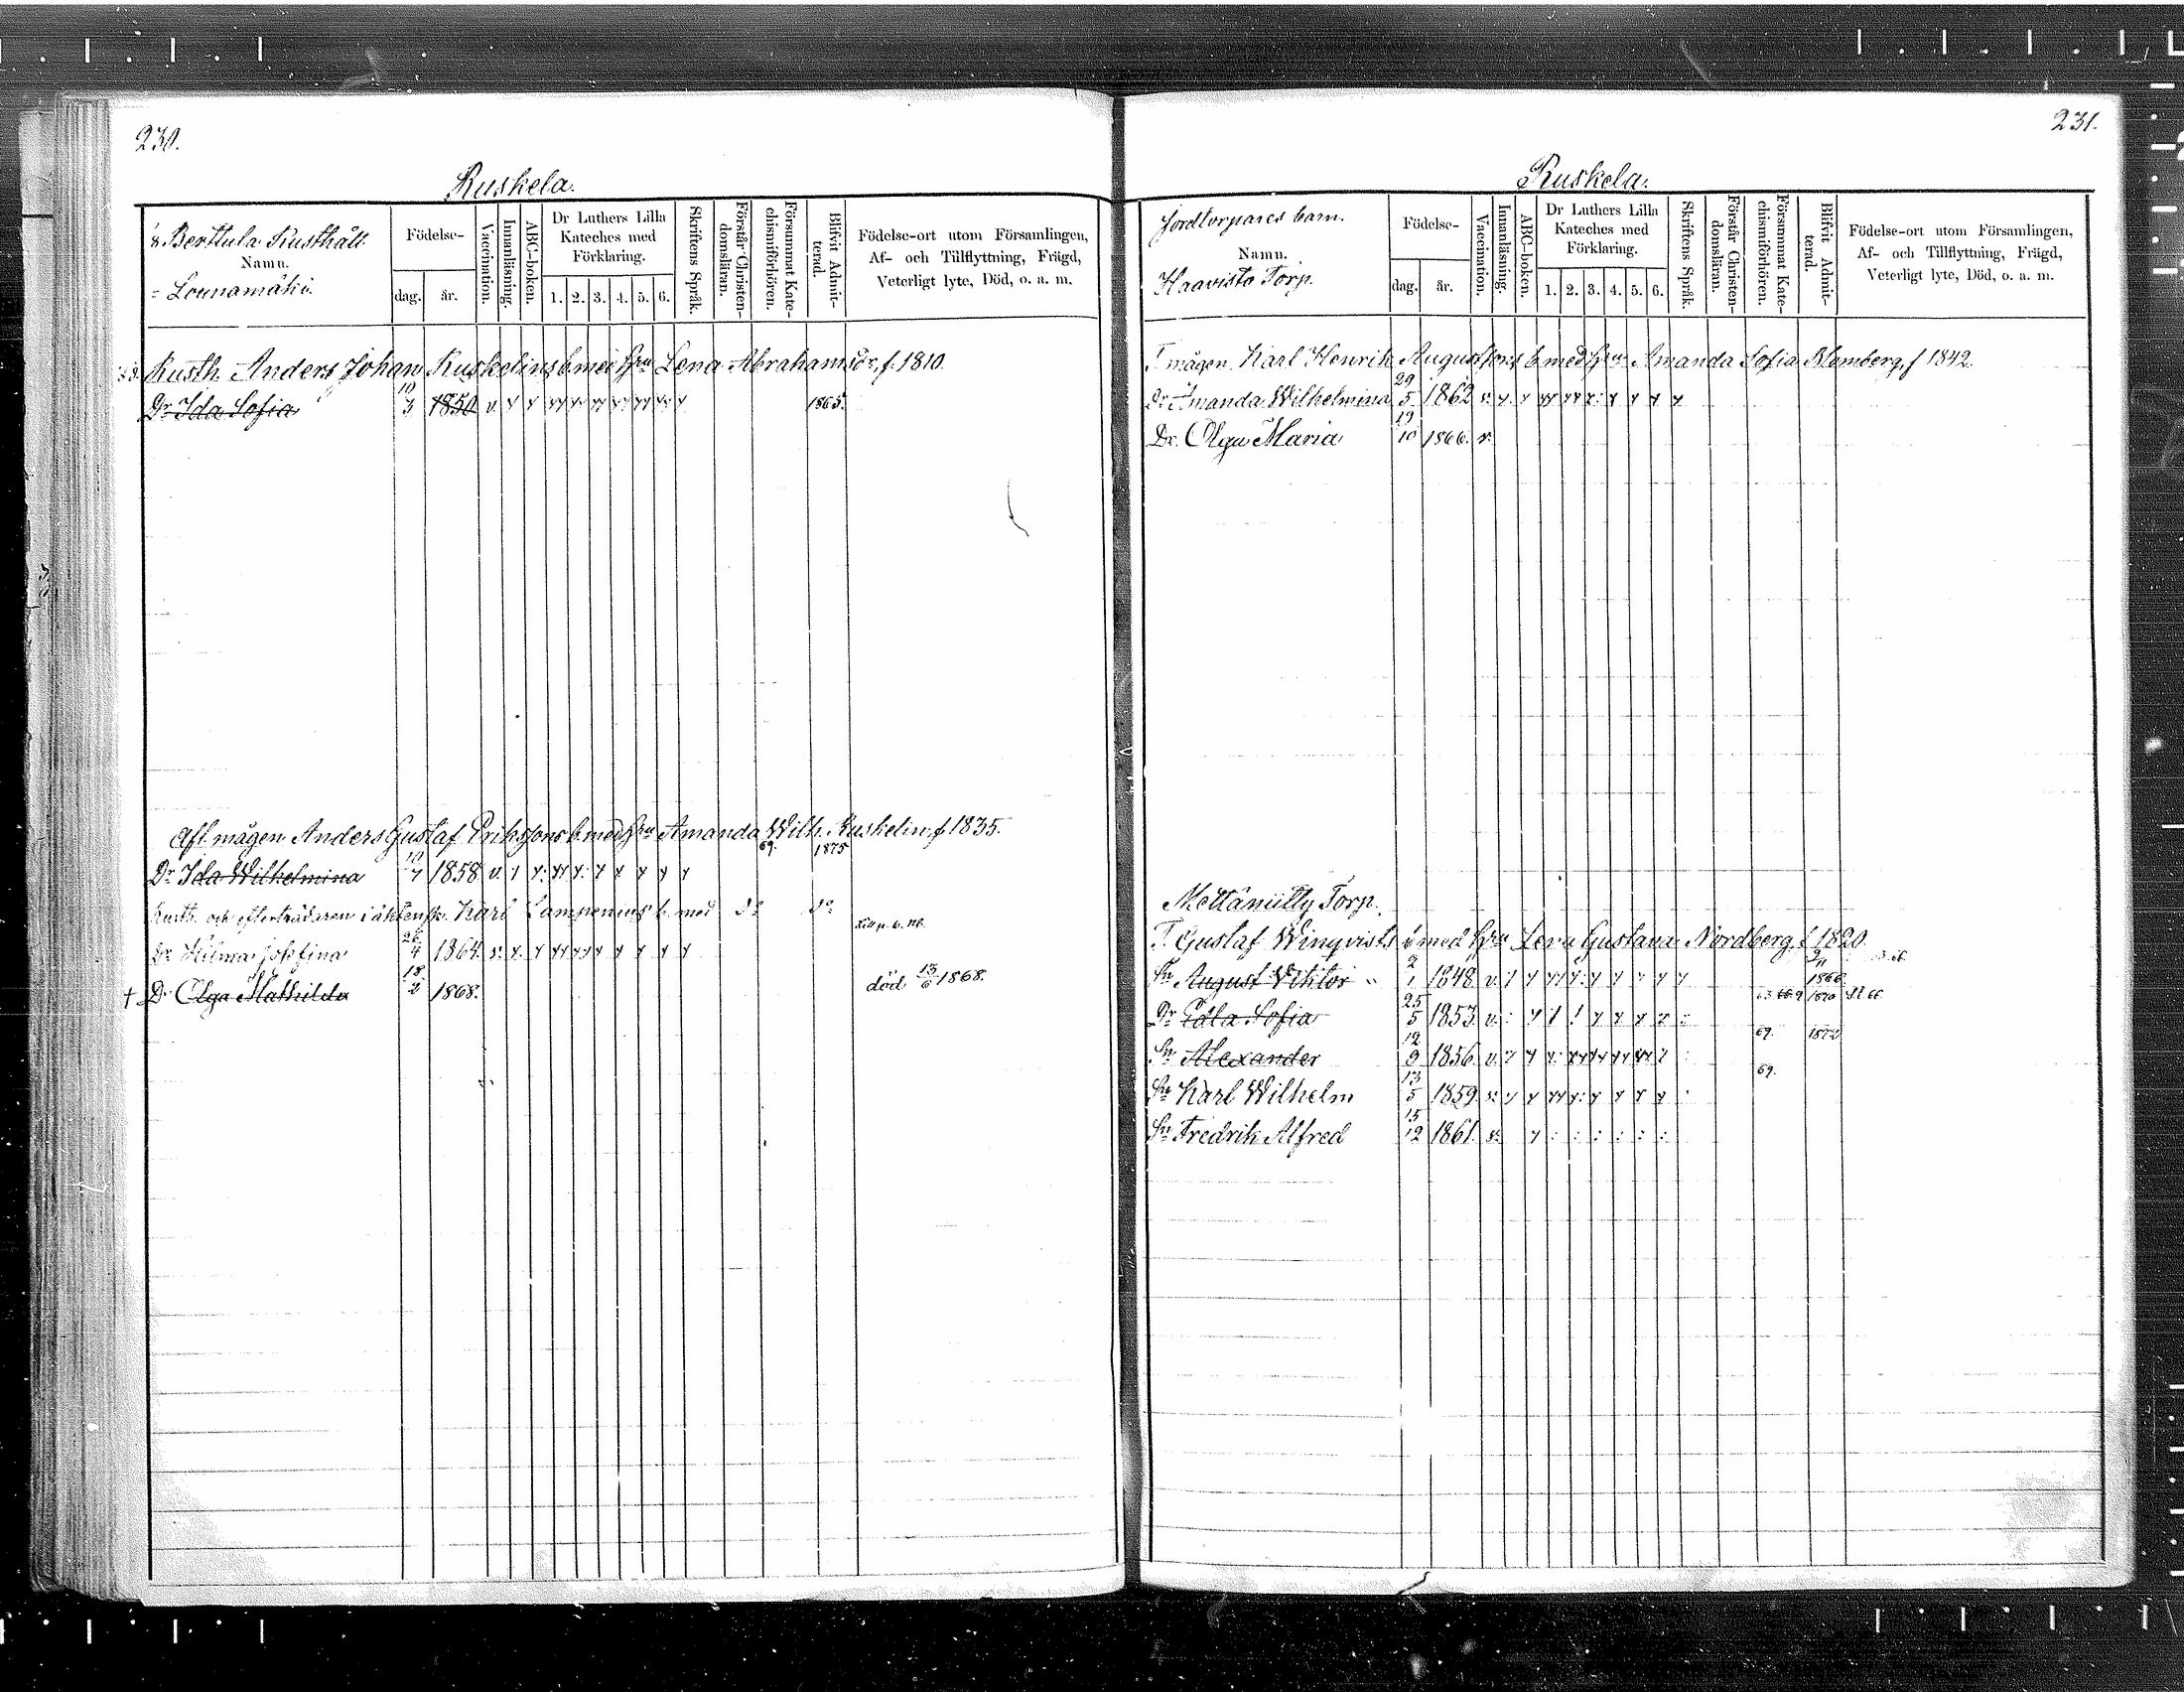 230.
Ruskela.
Berttula Rusthåll.
Namn.
= Lounamäki.
Födelse-
dag. år.
Vaccination.
Innanläsning.
ABC-boken.
Dr Luthers Lilla Kateches med Förklaring.
1. 2. 3. 4. 5. 6.
Skriftens Språk.
Förstår Christendomsläran.
Försummat Katechismiförhören.
Blifvit Admitterad.
Födelse-ort utom Församlingen,
Af- och Tillflyttning, Frägd,
Veterligt lyte, Död, o. a. m.
Rusth. Anders Johan Ruskelins b. med hu Lena Abrahamsdr, f. 1810.
Dr Ida Sofia 10/3 1850 v. 1865.
Afl. mågen Anders Gustaf Erikssons b. med hu Amanda Wilh. Ruskelin, f 1835.
69. 1875
Dr Ida Wilhelmina 10/7 1858 v.
Rusth. och efterträdaren i äktensk. Karl Lampenius b. med do do
Dr Hilma Josefina 26/4 1864.
† Dr Olga Mathilda 18/2 1868. död 13/6 1868.
231.
Ruskela.
Jordtorpares barn.
Namn.
Haavisto Torp.
Födelse-
dag. år.
Vaccination.
Innanläsning.
ABC-boken.
Dr Luthers Lilla Kateches med Förklaring.
1. 2. 3. 4. 5. 6.
Skriftens Språk.
Förstår Christendomsläran.
Försummat Katechismiförhören.
Blifvit Admitterad.
Födelse-ort utom Församlingen,
Af- och Tillflyttning, Frägd,
Veterligt lyte, Död, o. a. m.
T. mågen Karl Henrik Augustsons b. med hu Amanda Sofia Blomberg, f 1842.
Dr Amanda Wilhelmina 29/5 1862
Dr. Olga Maria 19/10 1866. v.
Mettäniitty Torp.
T. Gustaf Winqvists b med hu Lena Gustava Nordberg, f 1820.
Sn August Viktor 2/1 1848 v. 1866
Dr Edla Sofia 25/5 1853 v. 1870
Sn Alexander 12/9 1856 v. 69. 1872
Sn Karl Wilhelm 13/5 1859 69.
Sn Fredrik Alfred 15/12 1861.